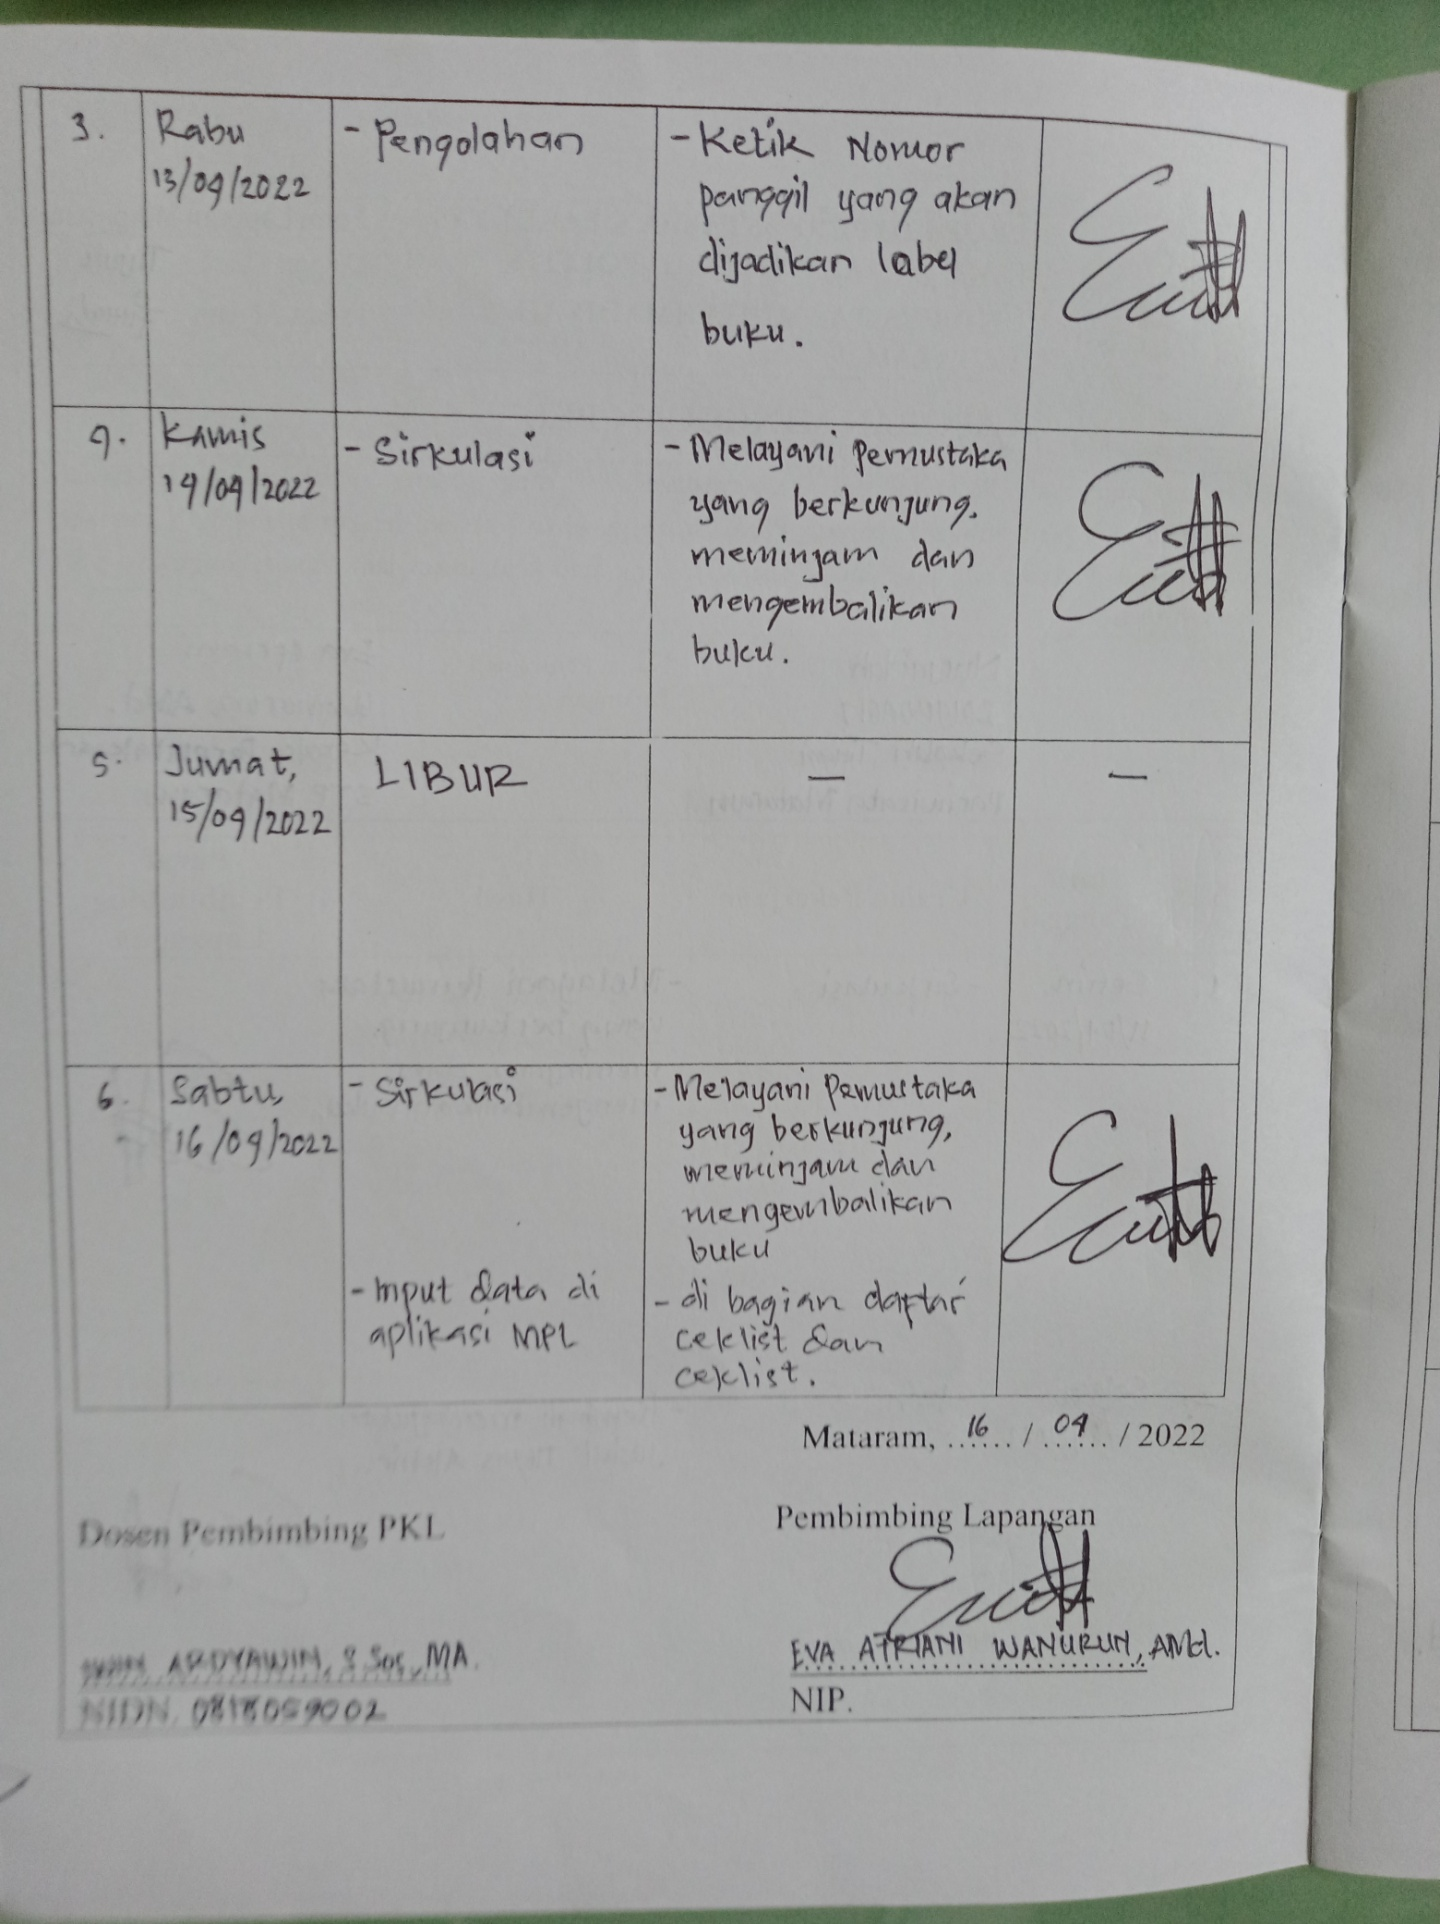 3.
Rabu
13/04/2022
- Pengolahan
- Ketik Nomor
panggil yang akan
dijadikan label
buku.
4.
Kamis
14/04/2022
- Sirkulasi
- Melayani Pemustaka
yang berkunjung.
meminjam dan
mengembalikan
buku.
5.
Jumat,
15/04/2022
LIBUR
—
—
6.
Sabtu,
16/04/2022
- Sirkulasi
- Melayani Pemustaka
yang berkunjung,
meminjam dan
mengembalikan
buku
- Input data di
aplikasi MPL
- di bagian daftar
ceklist dan
ceklist.
Mataram, 16 / 04 / 2022
Dosen Pembimbing PKL
Pembimbing Lapangan
ARDYAWIN, S.Sos, MA.
NIDN. 0818059002
EVA ATRIANI WANURUN, AMd.
NIP.